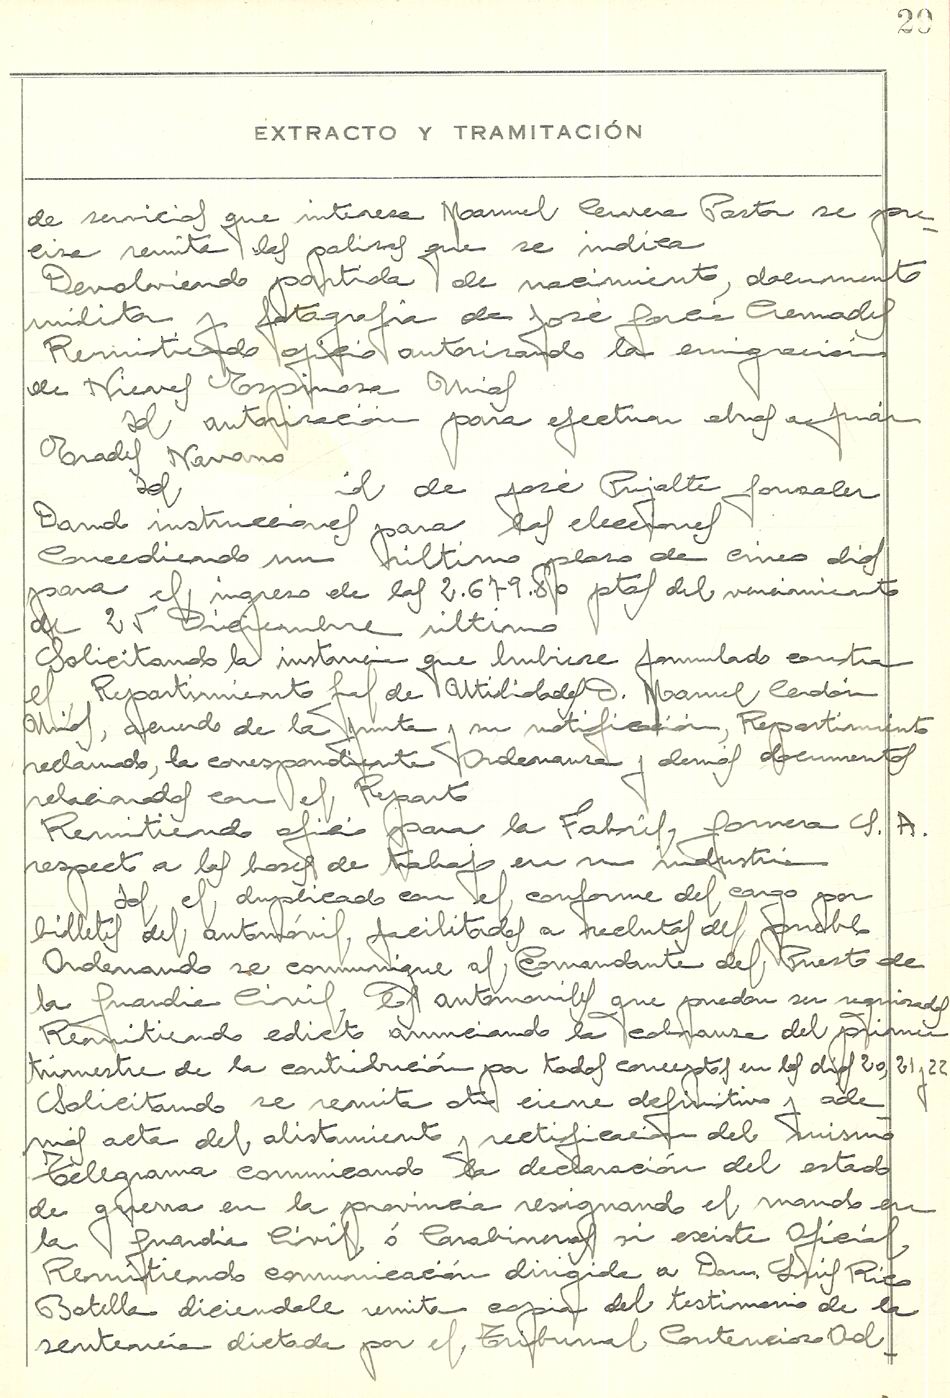 20
EXTRACTO Y TRAMITACIÓN
de servicios que interesa Manuel Cervera Pastor se pre-
cisa remita las polizas que se indica
Devolviendo partida de nacimiento, documento
militar y fotografia de José Garcia Cremades
Remitiendo oficio autorizando la emigración
de Nieves Espinosa
Id autorización para efectuar obras a Juan
Navarro
Id id de José Pujalte Gonzalez
Dando instrucciones para las elecciones
Concediendo un último plazo de cinco dias
para el ingreso de las 2.679.80 ptas del vencimiento
de 25 Diciembre último
Solicitando la instancia que hubiese formulado contra
el Repartimiento gral de Utilidades D. Manuel Cerdán
acuerdo de la Junta y su notificación, Repartimiento
reclamado, la correspondiente Ordenanza y demás documentos
relacionados con el Reparto
Remitiendo oficio para la Fabril, S. A.
respecto a las bases de trabajo en su industria
Id el duplicado con el conforme del cargo por
billetes del automóvil, facilitados a reclutas del pueblo
Ordenando se comunique al Comandante del Puesto de
la Guardia Civil, los automoviles que puedan ser requisados
Remitiendo edicto anunciando la cobranza del primer
trimestre de la contribución por todos conceptos en los dias 20, 21 y 22
Solicitando se remita cierre definitivo y ade-
más acta del alistamiento y rectificación del mismo
Telegrama comunicando la declaración del estado
de guerra en la provincia resignando el mando en
la Guardia Civil, ó Carabineros si existe Oficial,
Remitiendo comunicación dirigida a Don Luis Rico
Botella diciendole remita copia del testimonio de la
sentencia dictada por el Tribunal Contencioso Ad-